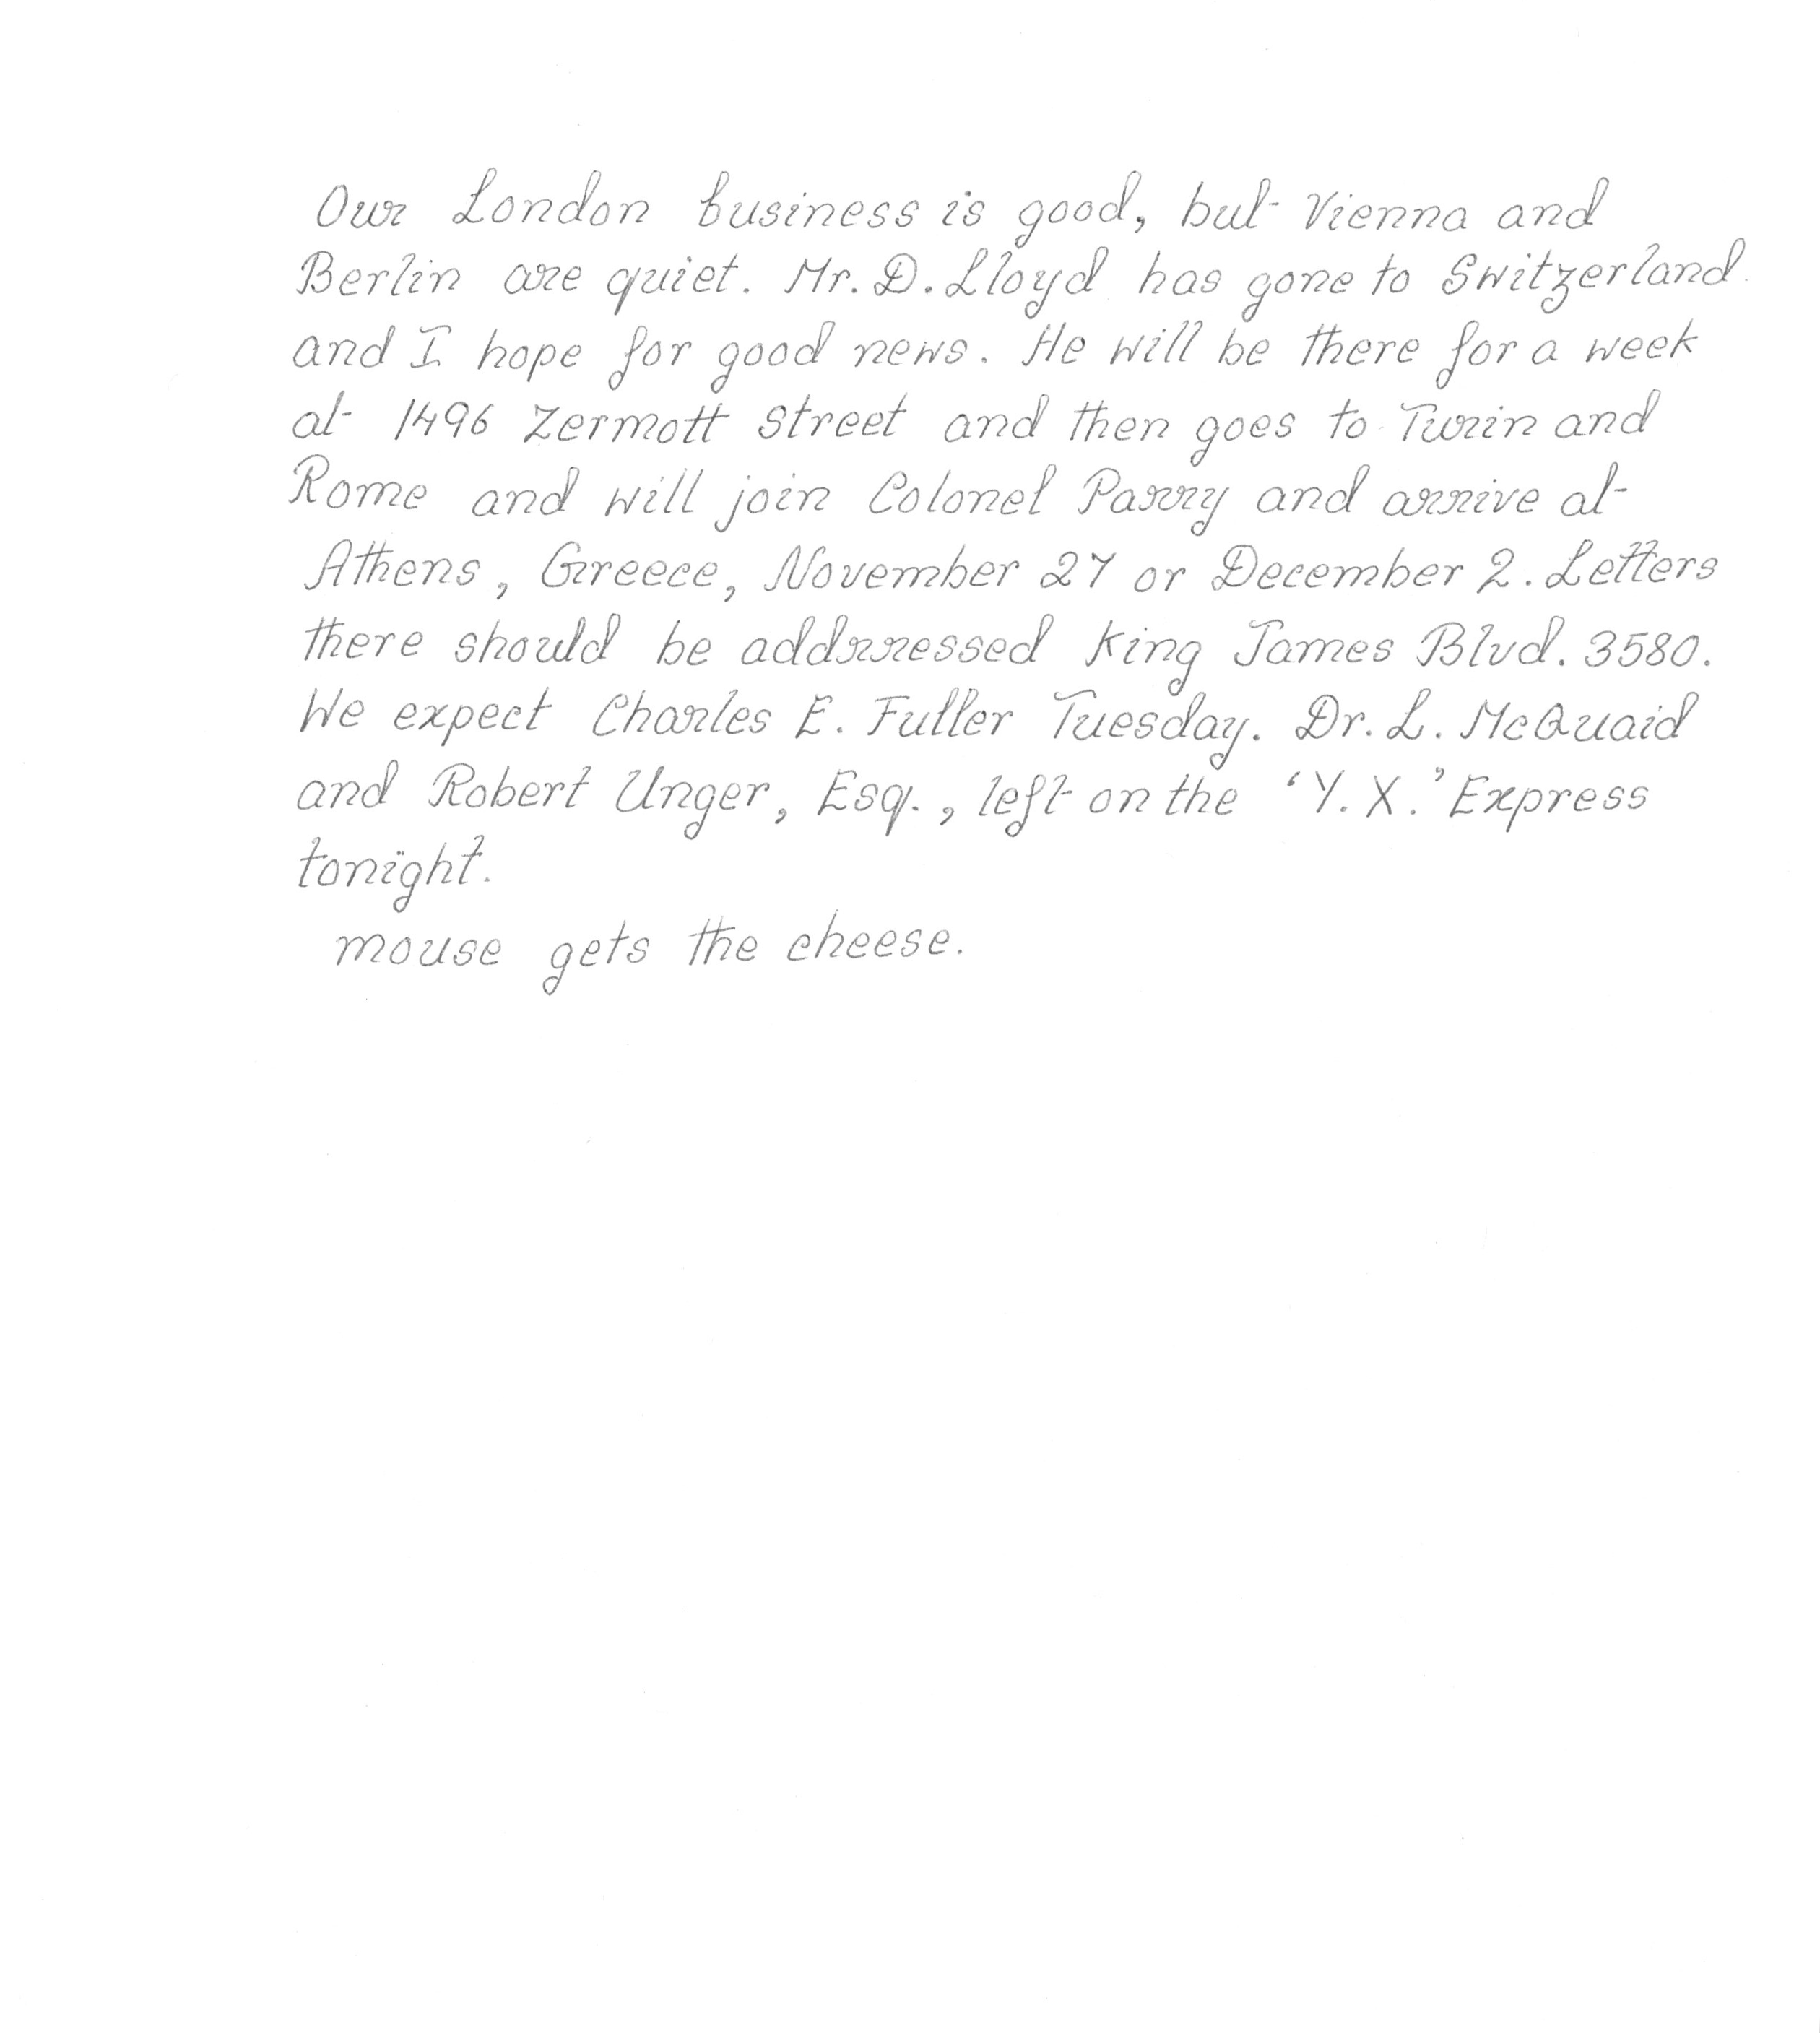 Our London business is good, but Vienna and
Berlin are quiet. Mr. D. Lloyd has gone to Switzerland
and I hope for good news. He will be there for a week
at 1496 Zermott Street and then goes to Turin and
Rome and will join Colonel Parry and arrive at
Athens, Greece, November 27 or December 2. Letters
there should be addrressed King James Blvd. 3580.
We expect Charles E. Fuller Tuesday. Dr. L. McQuaid
and Robert Unger, Esq., left on the 'Y. X.' Express
tonight.
mouse gets the cheese.